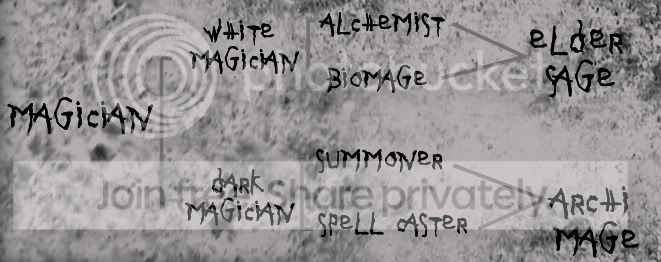 WHITE
MAGICIAN
ALCHEMIST
BIOMAGE
ELdER
SAGE
MAGICIAN
dARK
MAGICIAN
SUMMONER
SPELL CASTER
ARCHI
MAGE
photobucket
Join free. Share privately